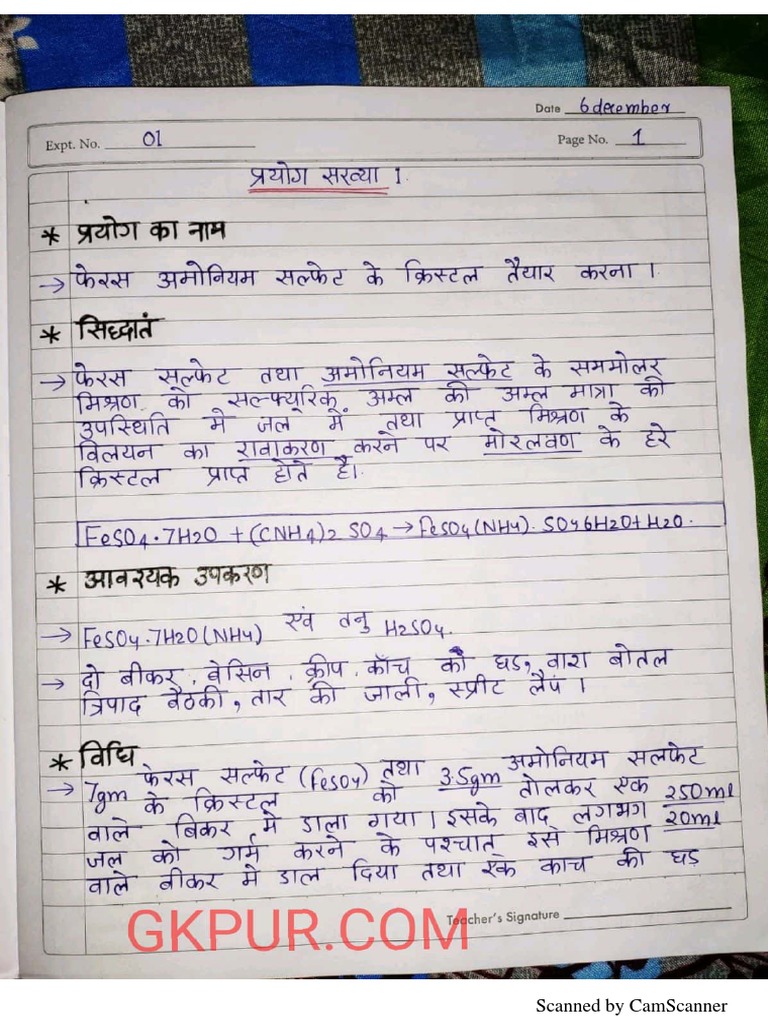 Date 6 december
Expt. No. 01
Page No. 1
प्रयोग सख्या 1.
* प्रयोग का नाम
→ फेरस अमोनियम सल्फेट के क्रिस्टल तैयार करना ।
* सिद्धातं
→ फेरस सल्फेट तथा अमोनियम सल्फेट के सममोलर
मिश्रण को सल्फ्यूरिक अम्ल की अम्ल मात्रा की
उपस्थिति मे जल में तथा प्राप्त मिश्रण के
विलयन का रावाकरण करने पर मोरलवण के हरे
क्रिस्टल प्राप्त होते है।
FeSO4.7H2O + (CNH4)2 SO4 → FeSO4(NH4). SO46H2O+H2O.
* आवश्यक उपकरण
→ FeSO4.7H2O(NH4) एवं तनु H2SO4.
→ दो बीकर, बेसिन, क्रीप, काँच की छड़, वाश बोतल
त्रिपाद बैठकी, तार की जाली, स्प्रीट लैंप ।
* विधि
→ 7gm फेरस सल्फेट (FeSO4) तथा 3.5gm अमोनियम सलफेट
के क्रिस्टल को तोलकर एक 250ml
वाले बिकर मे डाला गया । इसके बाद लगभग 20ml
जल को गर्म करने के पश्चात इसे मिश्रण
वाले बीकर मे डाल दिया तथा एक काच की छड़
Teacher's Signature
GKPUR.COM
Scanned by CamScanner